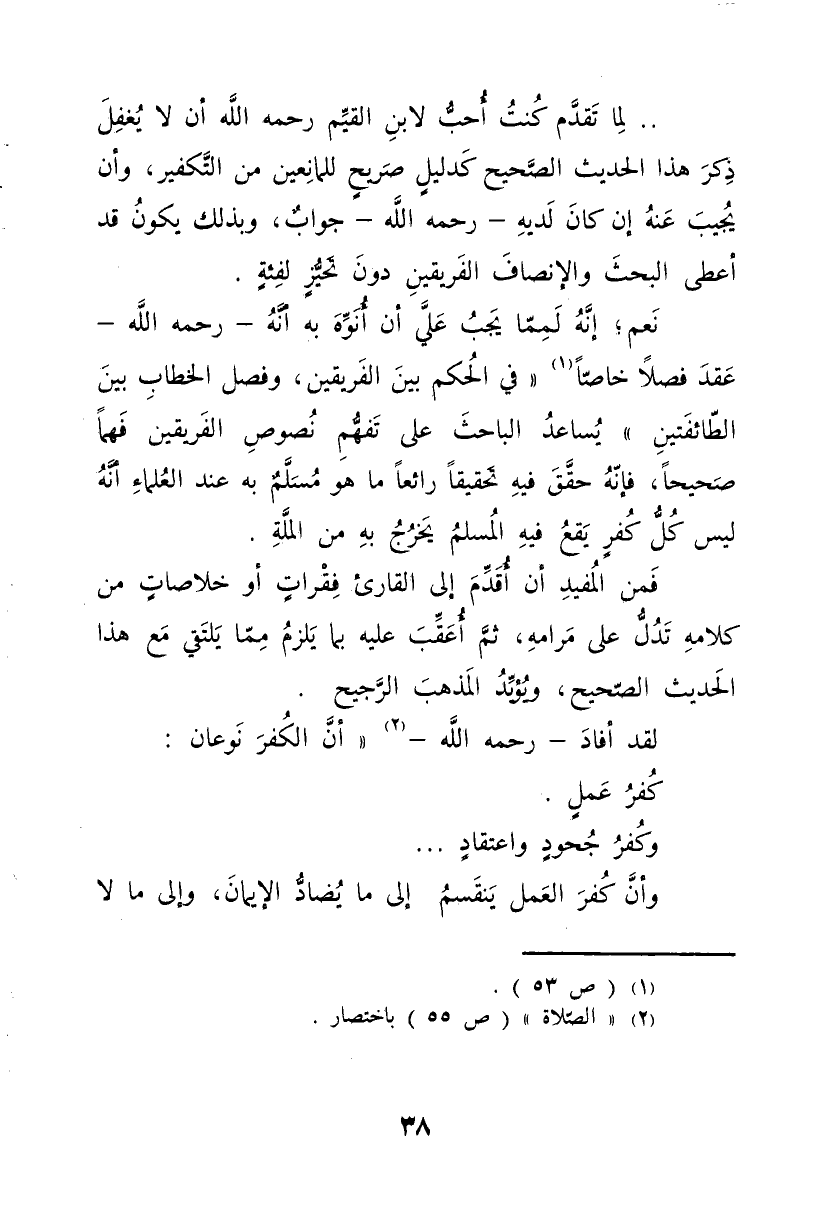 .. لِمَا تَقدَّم كُنتُ أُحبُّ لابنِ القيِّم رحمه اللَّه أن لا يُغفِلَ
ذِكرَ هذا الحديث الصَّحيح كَدليلٍ صَريحٍ للمانِعين من التَّكفير، وأن
يُجيبَ عَنهُ إن كانَ لَديهِ – رحمه اللَّه – جوابٌ، وبذلك يكونُ قد
أعطى البحثَ والإنصافَ الفَريقينِ دونَ تَحيُّزٍ لفِئةٍ .
نَعم؛ إنَّهُ لَمِمّا يَجبُ عَليَّ أن أُنَوِّهَ به أنَّهُ – رحمه اللَّه –
عَقدَ فصلًا خاصّاً(١) « في الحُكم بينَ الفَريقين، وفصل الخطابِ بينَ
الطّائفَتينِ » يُساعدُ الباحثَ على تَفهُّمِ نُصوصِ الفَريقين فَهماً
صَحيحاً، فإنّهُ حقَّقَ فيهِ تَحقيقاً رائعاً ما هو مُسَلَّمٌ به عند العُلماءِ أنَّهُ
ليس كُلُّ كُفرٍ يَقعُ فيهِ المُسلمُ يَخرُجُ بهِ من الملَّةِ .
فَمن المُفيدِ أن أُقَدِّمَ إلى القارئ فِقْراتٍ أو خلاصاتٍ من
كلامهِ تَدُلُّ على مَرامهِ، ثمَّ أُعَقِّبَ عليه بما يَلزمُ مِمّا يَلتَقي مَع هذا
الحَديث الصّحيح، ويُؤيِّدُ المَذهبَ الرَّجيح .
لقد أفادَ – رحمه اللَّه –(٢) « أنَّ الكُفرَ نَوعان :
كُفرُ عَملٍ .
وكُفرُ جُحودٍ واعتقادٍ ...
وأنَّ كُفرَ العَمل يَنقَسمُ إلى ما يُضادُّ الإيمانَ، وإلى ما لا
(١) ( ص ٥٣ ) .
(٢) « الصّلاة » ( ص ٥٥ ) باختصار .
٣٨